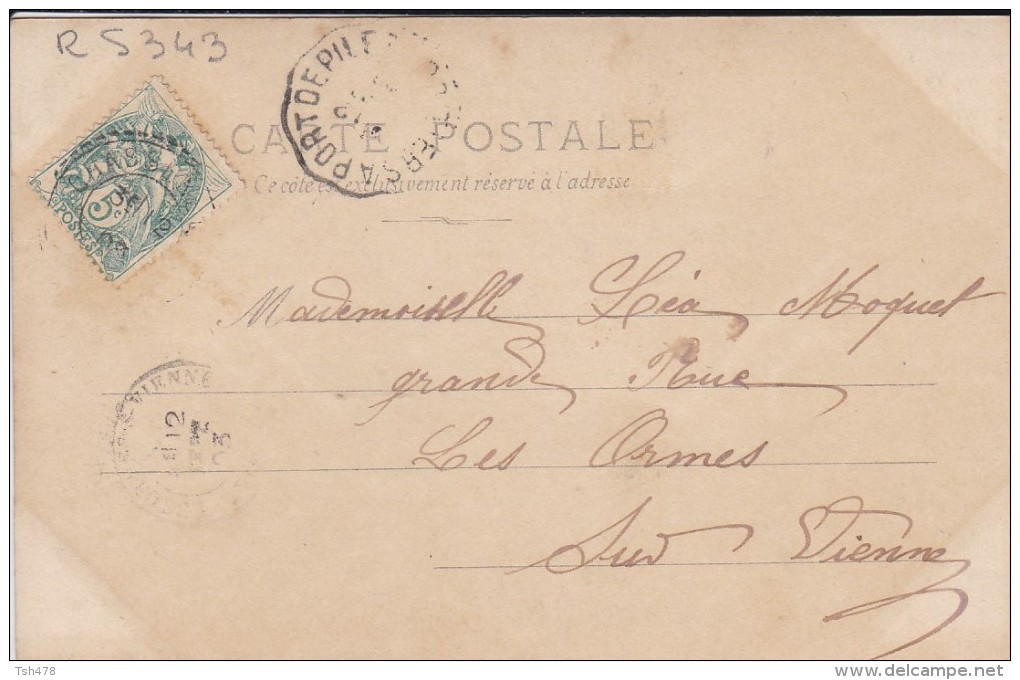 R 5343
PORT DE PILE
CARTE POSTALE
Ce côté est exclusivement réservé à l'adresse
5c
POSTES
Mademoiselle Léa Moquet
grande Rue
Les Ormes
Sud Vienne
VIENNE
12
Tsh478
www.delcampe.net